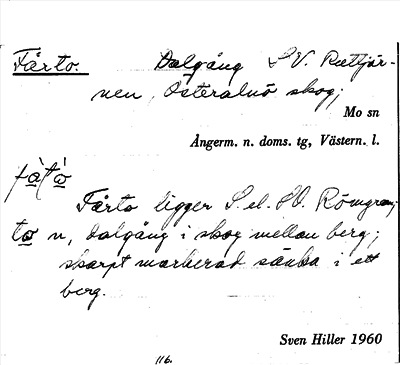 Fårto. Dalgång S.V. Rattjär-
nen, Österalnö skog;
Mo sn
Ångerm. n. doms. tg, Västern. l.
fàtò
Fårto ligger S el. SO. Römgran,
to n, dalgång i skog mellan berg;
skarpt markerad sänka i ett
berg.
Sven Hiller 1960
116.